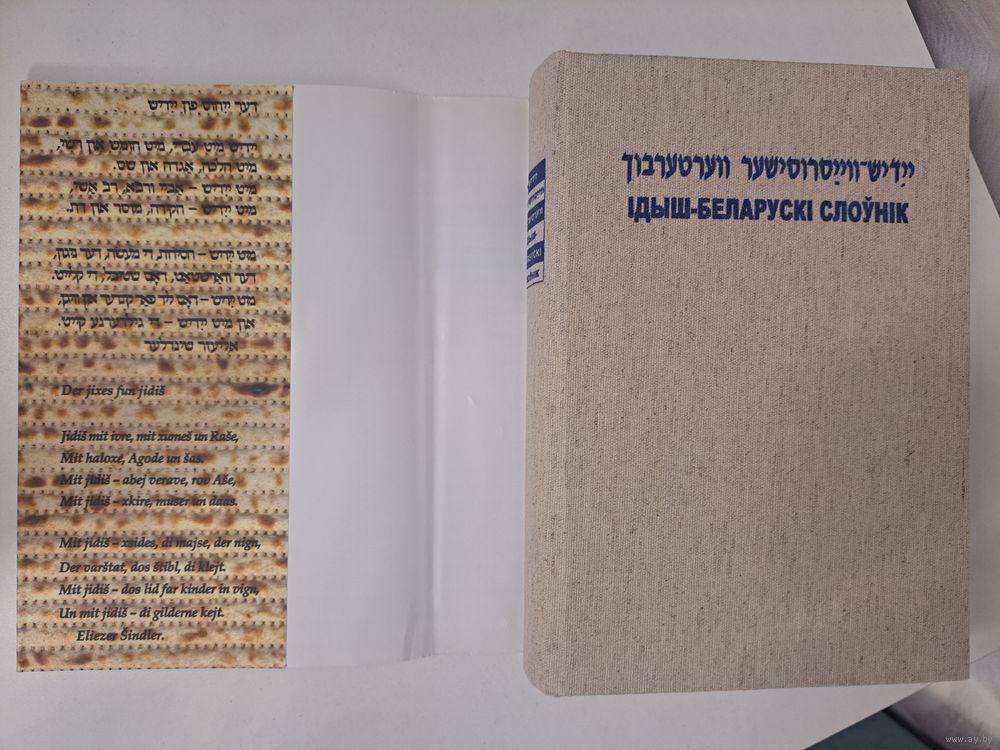 דער ייִחוס פֿון ייִדיש
ייִדיש מיט עבֿרי, מיט חומש און רש״י,
מיט הלכה, אַגדה און ש״ס.
מיט ייִדיש – אַבײ ורבֿא, רבֿ אַשי,
מיט ייִדיש – חקירה, מוסר און דת.
מיט ייִדיש – חסידות, די מעשׂה, דער ניגון,
דער וואַרשטאַט, דאָס שטיבל, די קלייט.
מיט ייִדיש – דאָס ליד פֿאַר קינדער אין וויגן,
און מיט ייִדיש – די גילדערנע קייט.
אליעזר שינדלער
Der jixes fun jidiš
Jidiš mit ivre, mit xumeš un Raše,
Mit haloxe, Agode un šas.
Mit jidiš – abej verave, rov Aše,
Mit jidiš – xkire, muser un daas.
Mit jidiš – xsides, di majse, der nign,
Der varštat, dos štibl, di klejt.
Mit jidiš – dos lid far kinder in vign,
Un mit jidiš – di gilderne kejt.
Eliezer Šindler.
ייִדיש-ווײַסרוסישער ווערטערבוך
ІДЫШ-БЕЛАРУСКІ СЛОЎНІК
www.ay.by